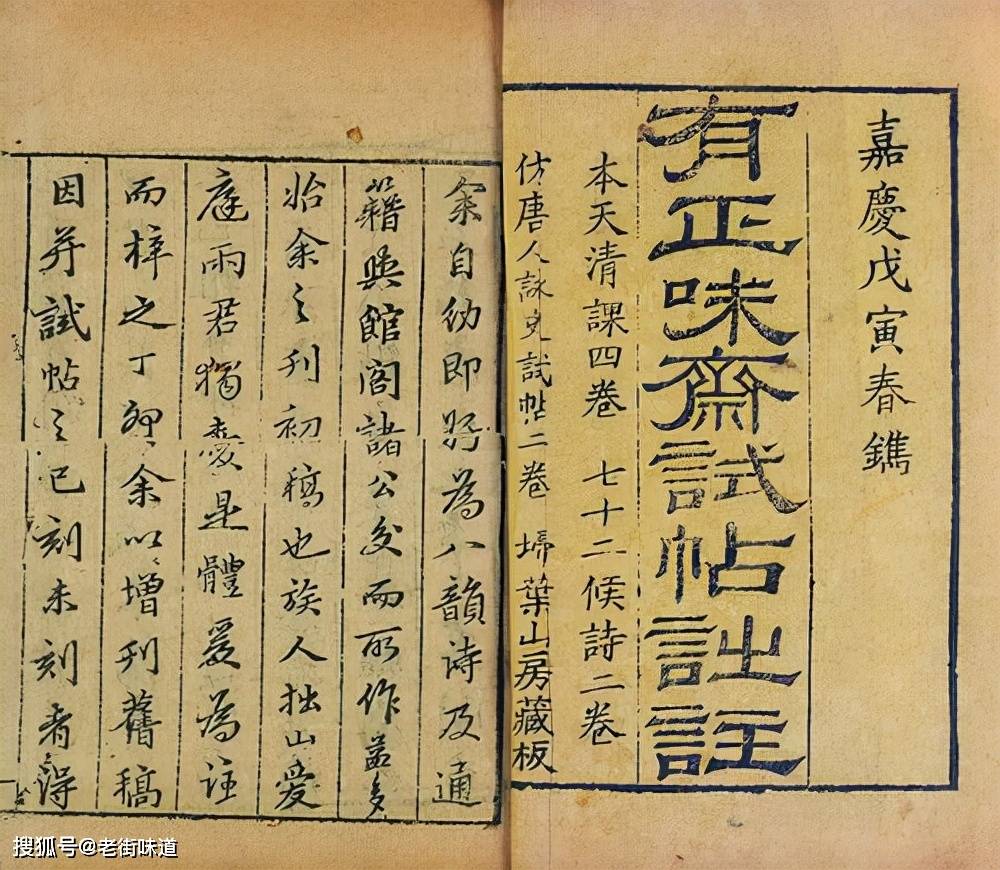 嘉慶戊寅春鐫
有正味齋試帖詿註
本天清課四卷　七十二候詩二卷
仿唐人詠史試帖二卷　埽葉山房藏板
余自幼即好為八韻詩及通
籍與館閣諸公交而所作益多
余之刊初稿也族人拙山愛
庭雨君獨愛是體爰為註
而梓之丁卯余以增刊舊稿
因并試帖之已刻未刻者得
搜狐号@老街味道